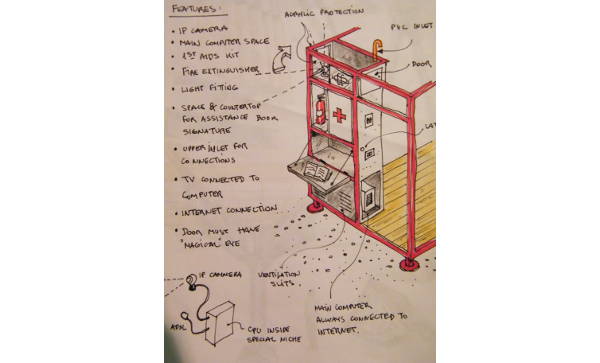 FEATURES:
• IP CAMERA
• MAIN COMPUTER SPACE
• 1ST AIDS KIT
• FIRE EXTINGUISHER
• LIGHT FITTING
• SPACE & COUNTERTOP
FOR ASSISTANCE BOOK
SIGNATURE
• UPPER INLET FOR
CONNECTIONS
• TV CONNECTED TO
COMPUTER
• INTERNET CONNECTION
• DOOR MUST HAVE
"MAGICAL" EYE
ACRYLIC PROTECTION
PVC INLET
DOOR
IP CAMMERA
CPU INSIDE
SPECIAL NICHE
VENTILATION
SLITS
MAIN COMPUTER
ALWAYS CONNECTED TO
INTERNET.